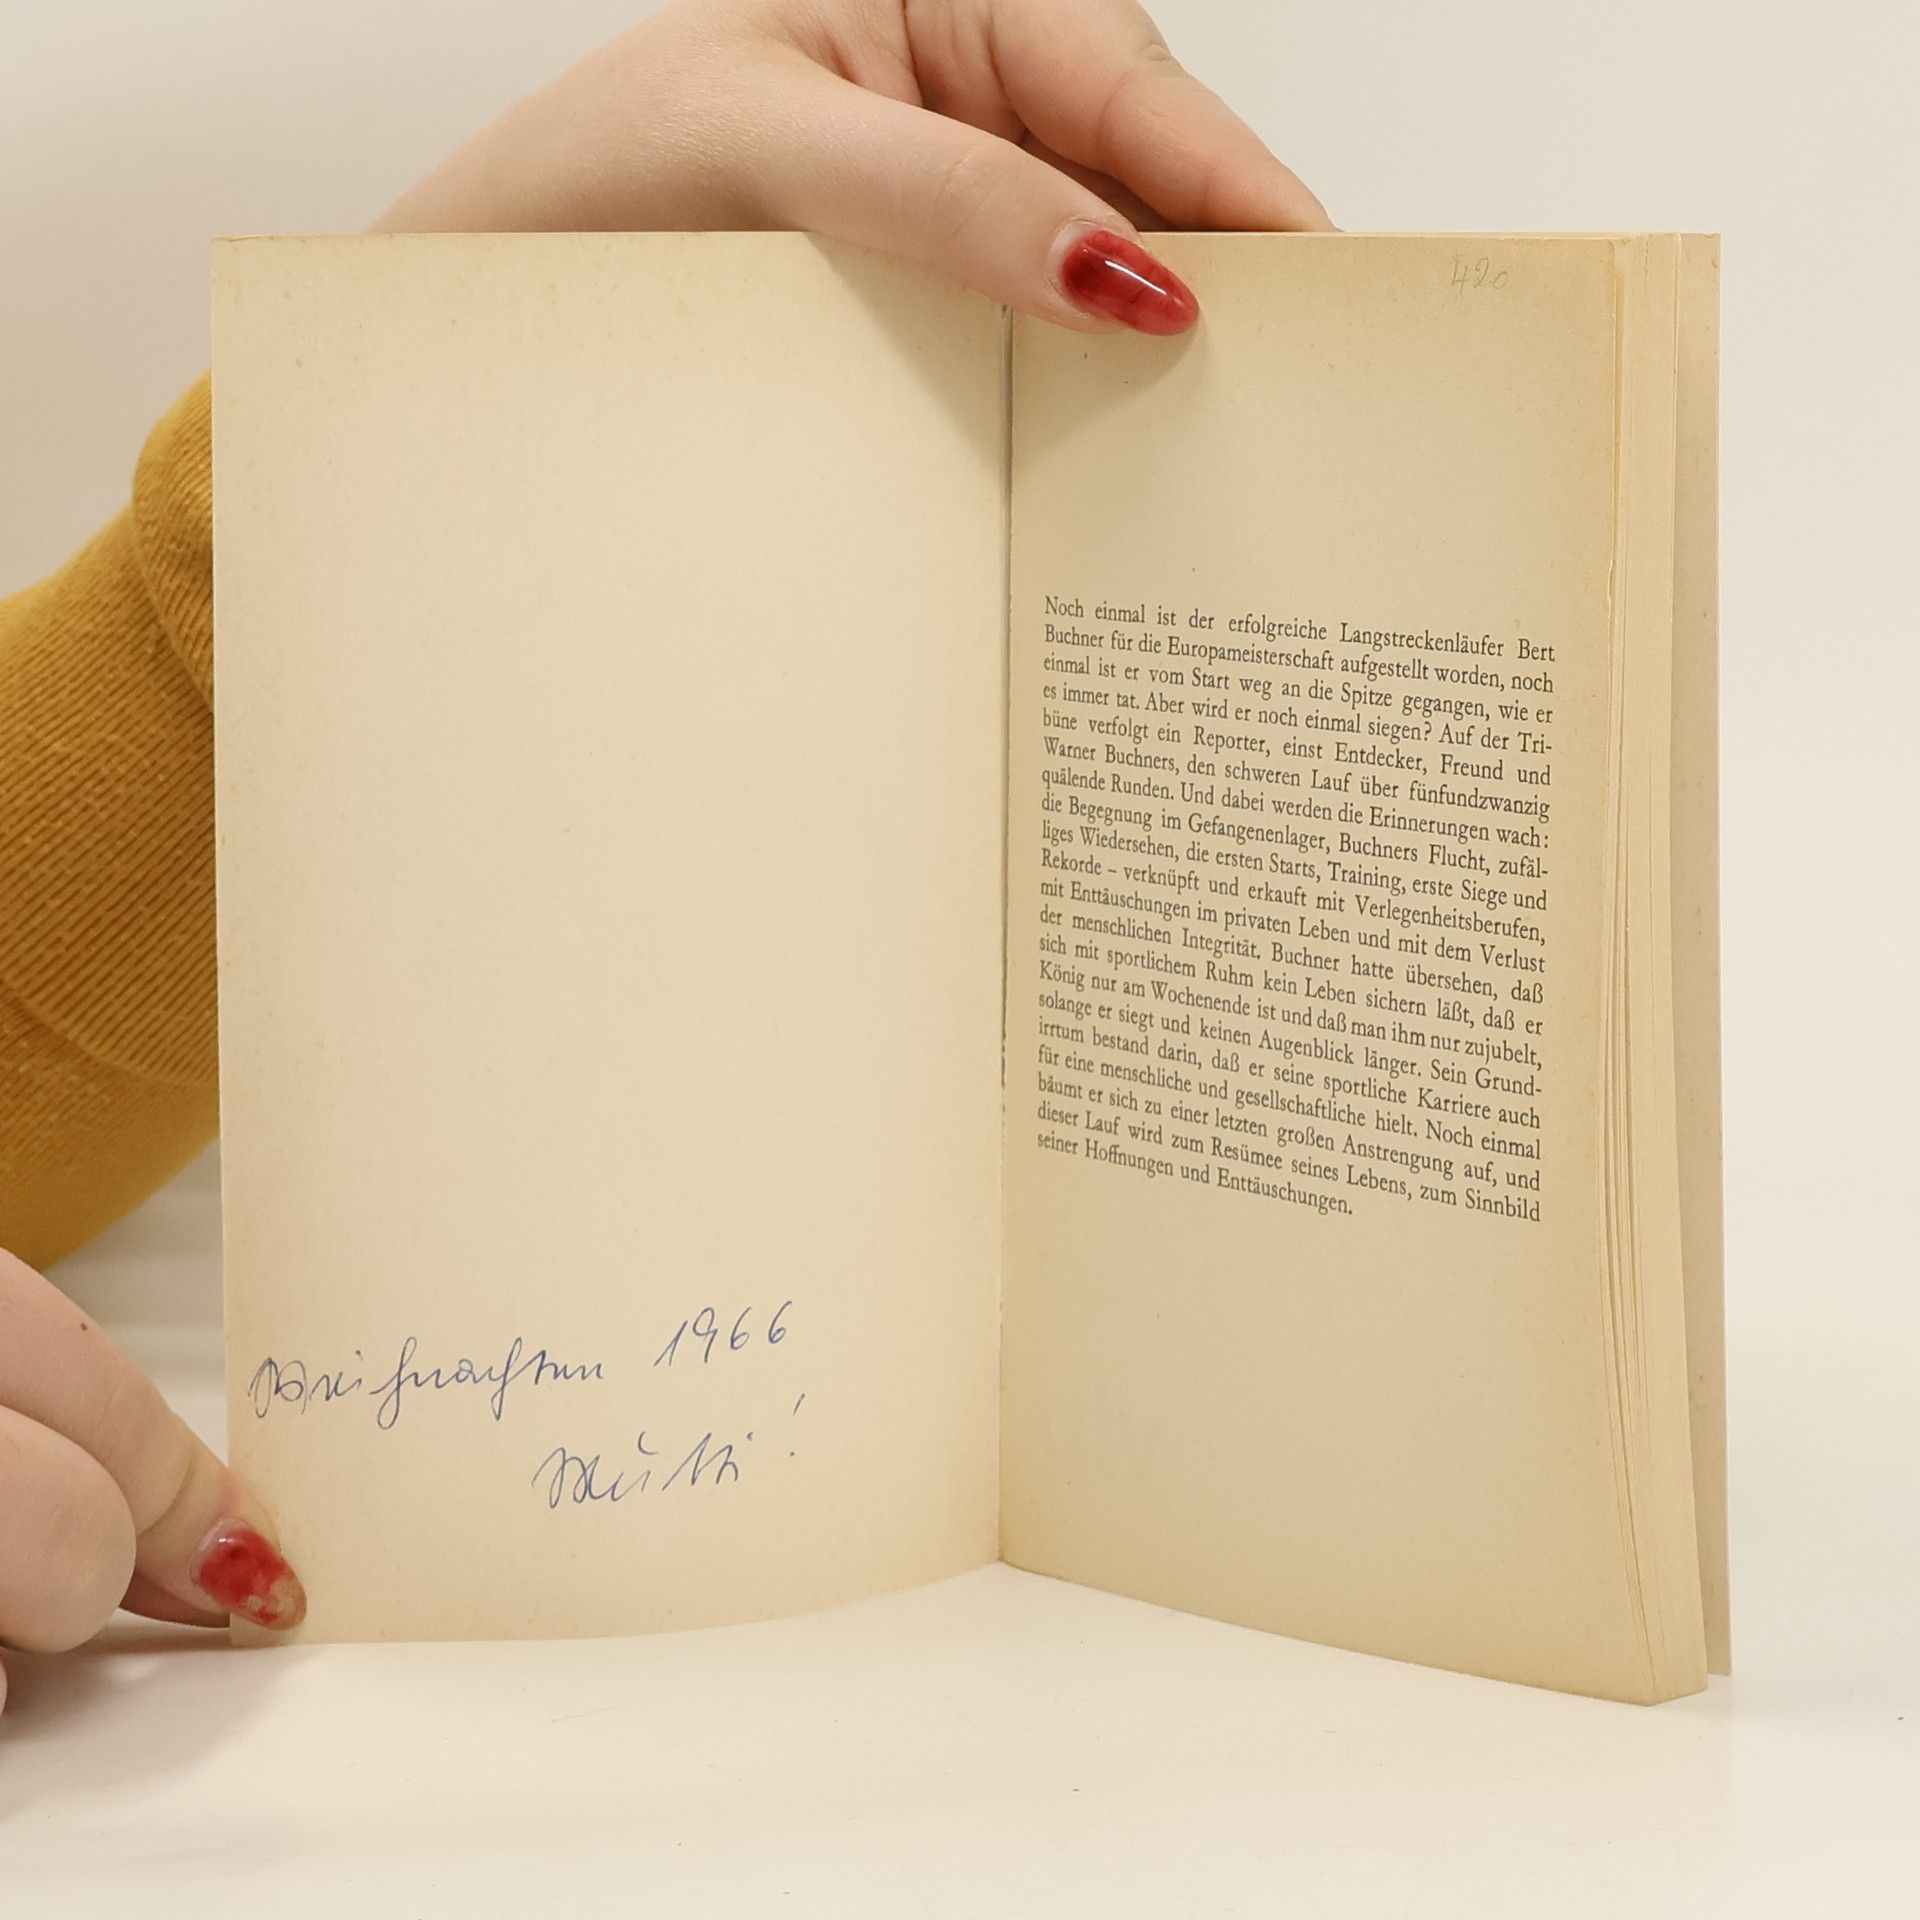 Weihnachten 1966
Mutti!
420
Noch einmal ist der erfolgreiche Langstreckenläufer Bert
Buchner für die Europameisterschaft aufgestellt worden, noch
einmal ist er vom Start weg an die Spitze gegangen, wie er
es immer tat. Aber wird er noch einmal siegen? Auf der Tri-
büne verfolgt ein Reporter, einst Entdecker, Freund und
Warner Buchners, den schweren Lauf über fünfundzwanzig
quälende Runden. Und dabei werden die Erinnerungen wach:
die Begegnung im Gefangenenlager, Buchners Flucht, zufäl-
liges Wiedersehen, die ersten Starts, Training, erste Siege und
Rekorde – verknüpft und erkauft mit Verlegenheitsberufen,
mit Enttäuschungen im privaten Leben und mit dem Verlust
der menschlichen Integrität. Buchner hatte übersehen, daß
sich mit sportlichem Ruhm kein Leben sichern läßt, daß er
König nur am Wochenende ist und daß man ihm nur zujubelt,
solange er siegt und keinen Augenblick länger. Sein Grund-
irrtum bestand darin, daß er seine sportliche Karriere auch
für eine menschliche und gesellschaftliche hielt. Noch einmal
bäumt er sich zu einer letzten großen Anstrengung auf, und
dieser Lauf wird zum Resümee seines Lebens, zum Sinnbild
seiner Hoffnungen und Enttäuschungen.